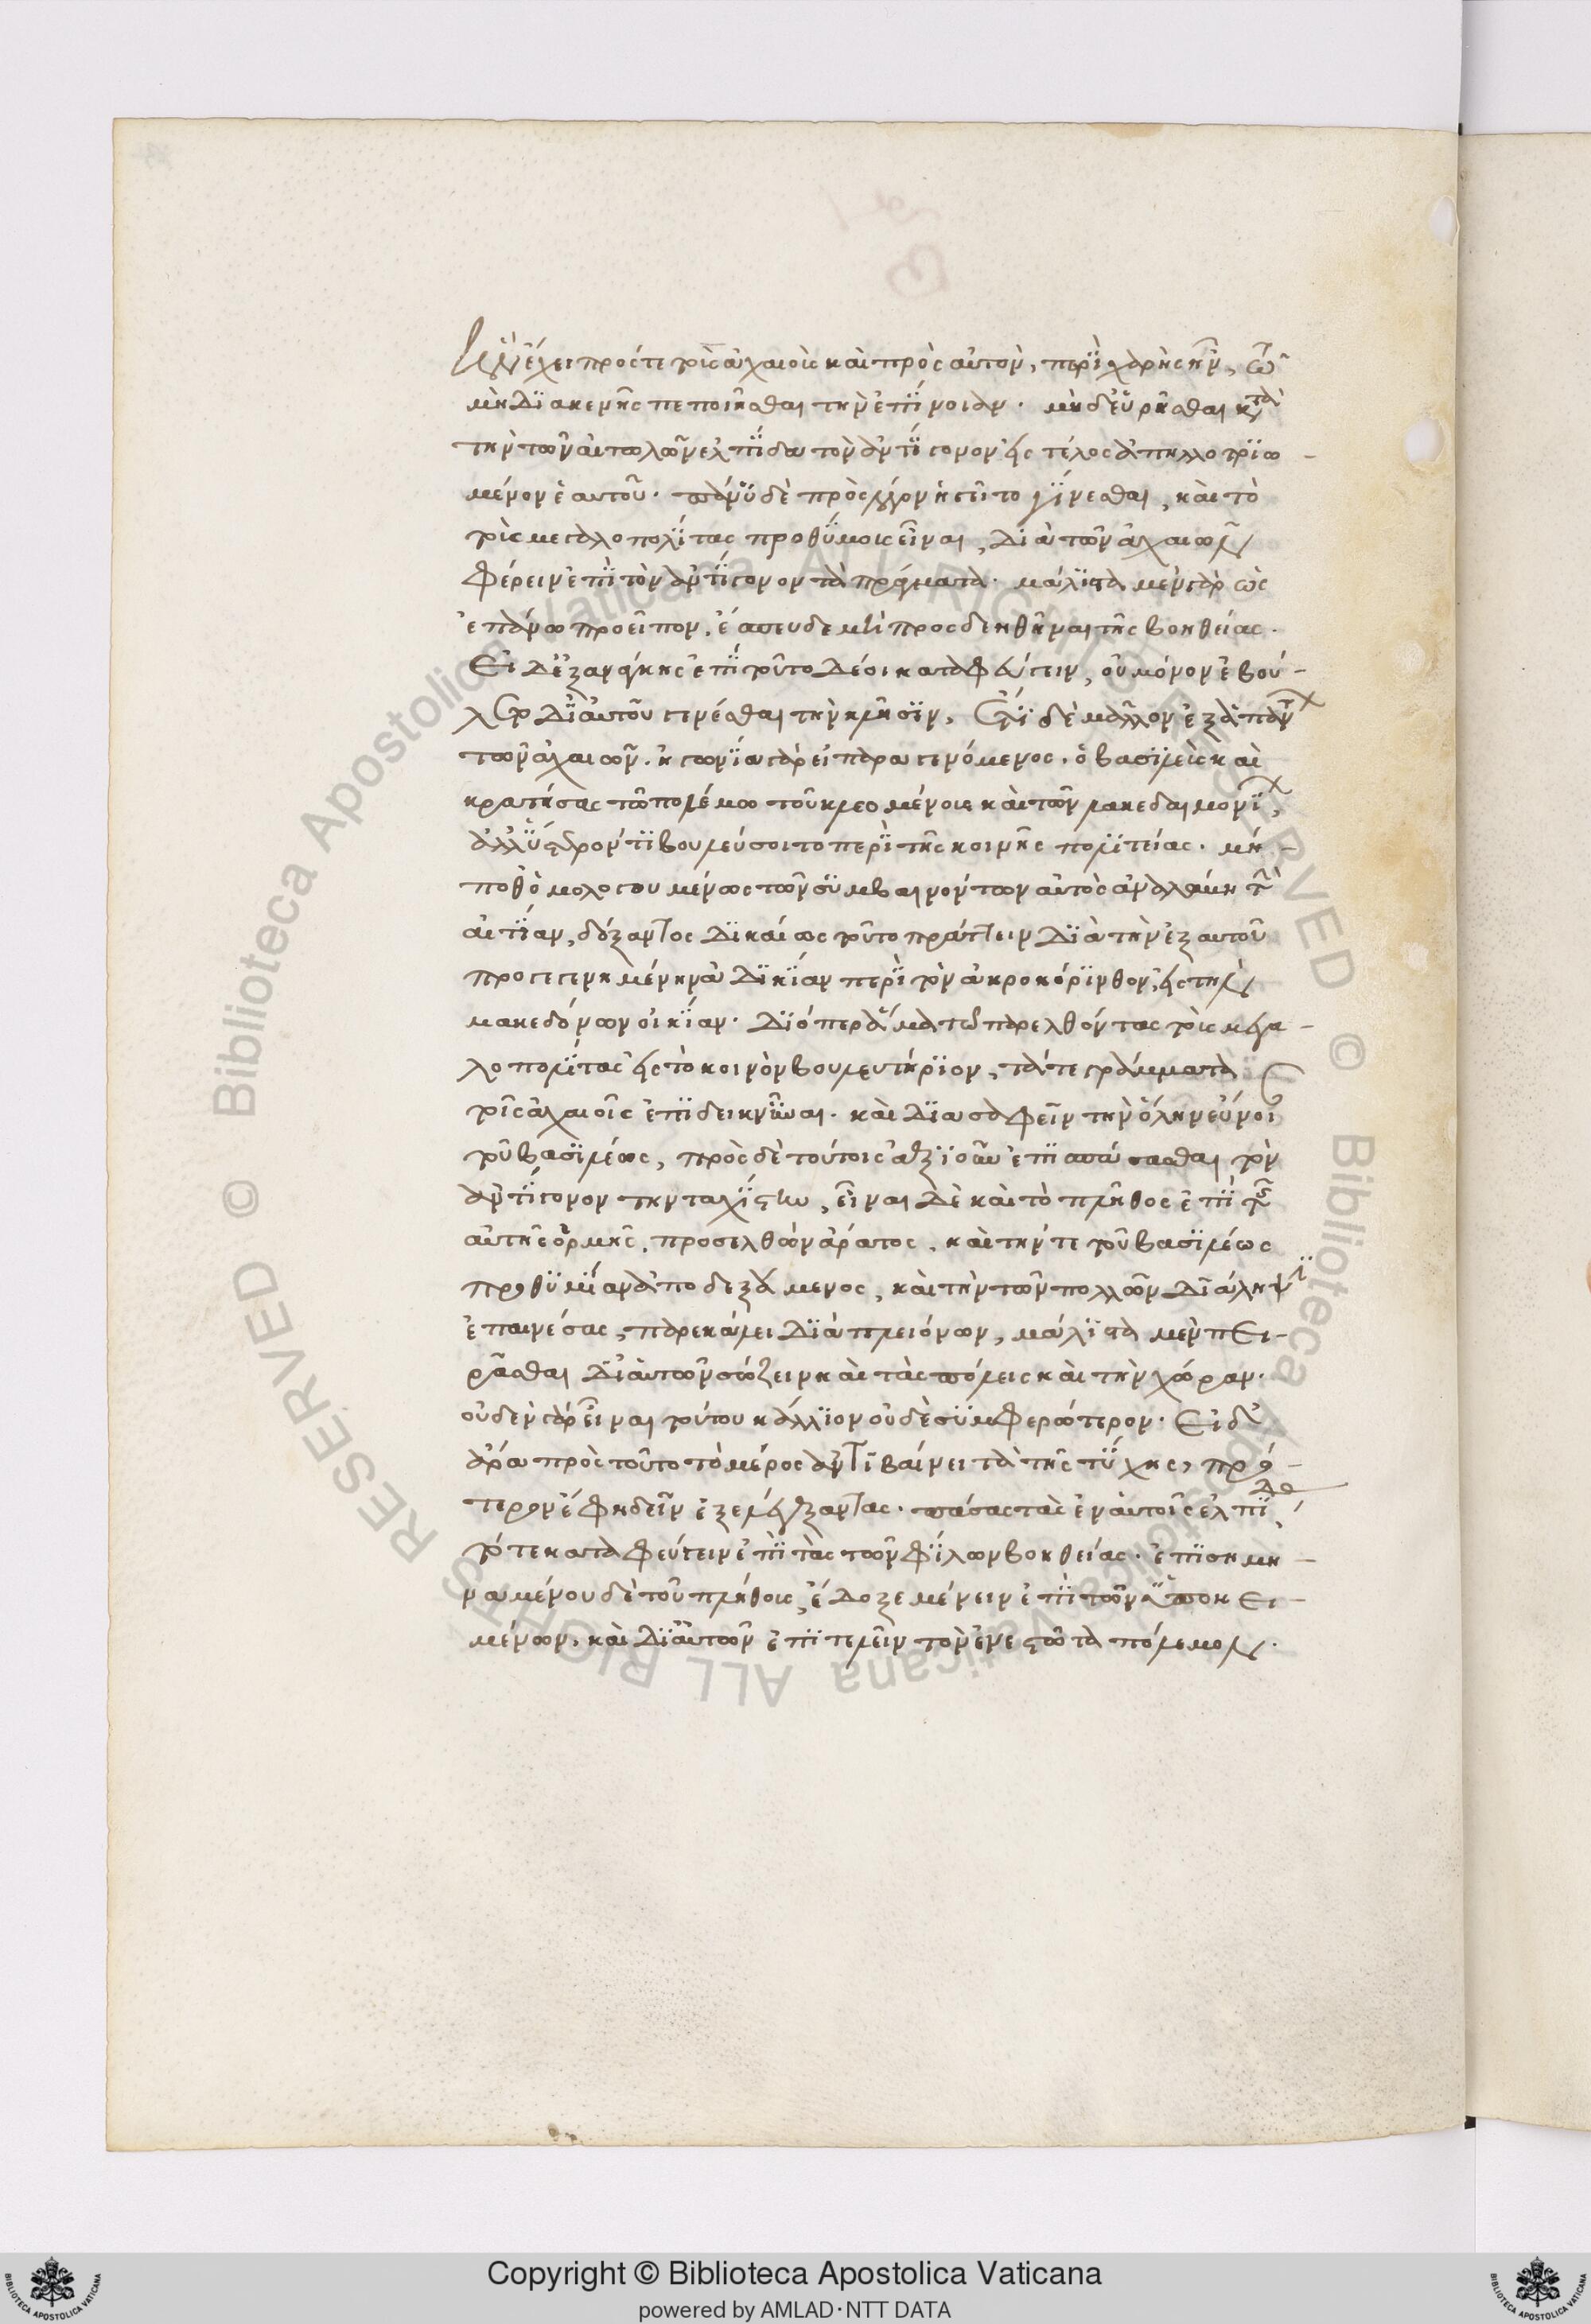 ἣν ἔχει πρός τε τοὺς ἀχαιοὺς καὶ πρὸς αὐτὸν, περϊχαρὴς ἦν, τῶ
μὴ δϊακενῆς πεποιῆσθαι τὴν ἐπΐνοιαν. μὴ δ' εὑρῆσθαι κατὰ
τὴν τῶν αἰτωλῶν ἐλπΐδα τὸν ἀντΐγονον εἰς τέλος ἀπηλλοτρϊω-
μένον ἑαυτοῦ. πάνϋ δὲ πρὸς λόγον ἡγεῖτο γΐνεσθαι, καὶ τὸ
τοὺς μεγαλοπολΐτας προθΰμους εἶναι, διὰ τῶν ἀχαιῶν
φέρειν ἐπῒ τὸν ἀντΐγονον τὰ πράγματα. μάλϊστα μὲν γὰρ ὡς
ἐπάνω προεῖπον, ἔσπευδε μὴ προσδεηθῆναι τῆς βοηθείας.
Εἰ δ' ἐξ ἀνάγκης ἐπῒ τοῦτο δέοι καταφεύγειν, οὐ μόνον ἐβού-
λετο δϊ' αὐτοῦ γενέσθαι τὴν κλῆσϊν, ἔτϊ δὲ μᾶλλον ἐξ ἁπάντων
τῶν ἀχαιῶν. ἠγωνΐα γὰρ εἰ παραγενόμενος ὁ βασϊλεὺς καὶ
κρατήσας τῶ πολέμω τοῦ κλεομένους καὶ τῶν λακεδαιμονΐων,
ἀλλϋότερόν τϊ βουλεύσοιτο περῒ τῆς κοινῆς πολϊτείας. μή-
ποθ' ὁμολογουμένως τῶν σϋμβαινόντων αὐτὸς ἀναλάβη τὴν
αἰτΐαν, δόξαντος δϊκαίως τοῦτο πράττειν δϊὰ τὴν ἐξ αὐτοῦ
προγεγενημένην ἀδϊκΐαν περῒ τὸν ἀκροκόρϊνθον, εἰς τὴν
μακεδόνων οἰκΐαν. δϊόπερ ἅμα τῶ παρελθόντας τοὺς μεγα-
λοπολΐτας εἰς τὸ κοινὸν βουλευτήρϊον, τά τε γράμματα
τοῖς ἀχαιοῖς ἐπϊδεικνΰναι. καὶ δϊασαφεῖν τὴν ὅλην εὔνοιαν
τοῦ βασϊλέως, πρὸς δὲ τούτοις ἀξϊοῦν ἐπϊσπάσασθαι τὸν
ἀντΐγονον τὴν ταχΐστην, εἶναι δὲ καὶ τὸ πλῆθος ἐπῒ τῆς
αὐτῆς ὁρμῆς, προσελθὼν ἄρατος, καὶ τήν τε τοῦ βασϊλέως
προθϋμΐαν ἀποδεξάμενος, καὶ τὴν τῶν πολλῶν δϊάληψϊν
ἐπαινέσας, παρεκάλει δϊὰ πλειόνων, μάλϊστα μὲν πει-
ρᾶσθαι δϊ' αὑτῶν σώζειν καὶ τὰς πόλεις καὶ τὴν χώραν.
οὐδὲν γὰρ εἶναι τούτου κάλλϊον οὐδὲ σϋμφερώτερον. Εἰ δ'
ἄρα πρὸς τοῦτο τὸ μέρος ἀντϊβαίνει τὰ τῆς τΰχης, πρό-
τερον ἔφη δεῖν ἐξελέγξαντας πάσας τὰς ἐν αὑτοῖς ἐλπΐδας,
τότε καταφεύγειν ἐπῒ τὰς τῶν φΐλων βοηθείας. ἐπϊσημη-
ναμένου δὲ τοῦ πλήθους, ἔδοξε μένειν ἐπῒ τῶν ὑποκει-
μένων, καὶ δϊ' αὑτῶν ἐπϊτελεῖν τὸν ἐνεστῶτα πόλεμον.